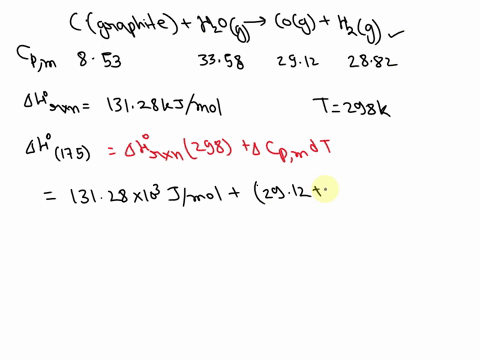 C(graphite) + H₂O(g) → CO(g) + H₂(g) ✓
Cp,m 8.53 33.58 29.12 28.82
ΔH°rxn = 131.28 kJ/mol T = 298k
ΔH°(175) = ΔH°rxn(298) + ΔCp,m dT
= 131.28 × 10³ J/mol + (29.12 +